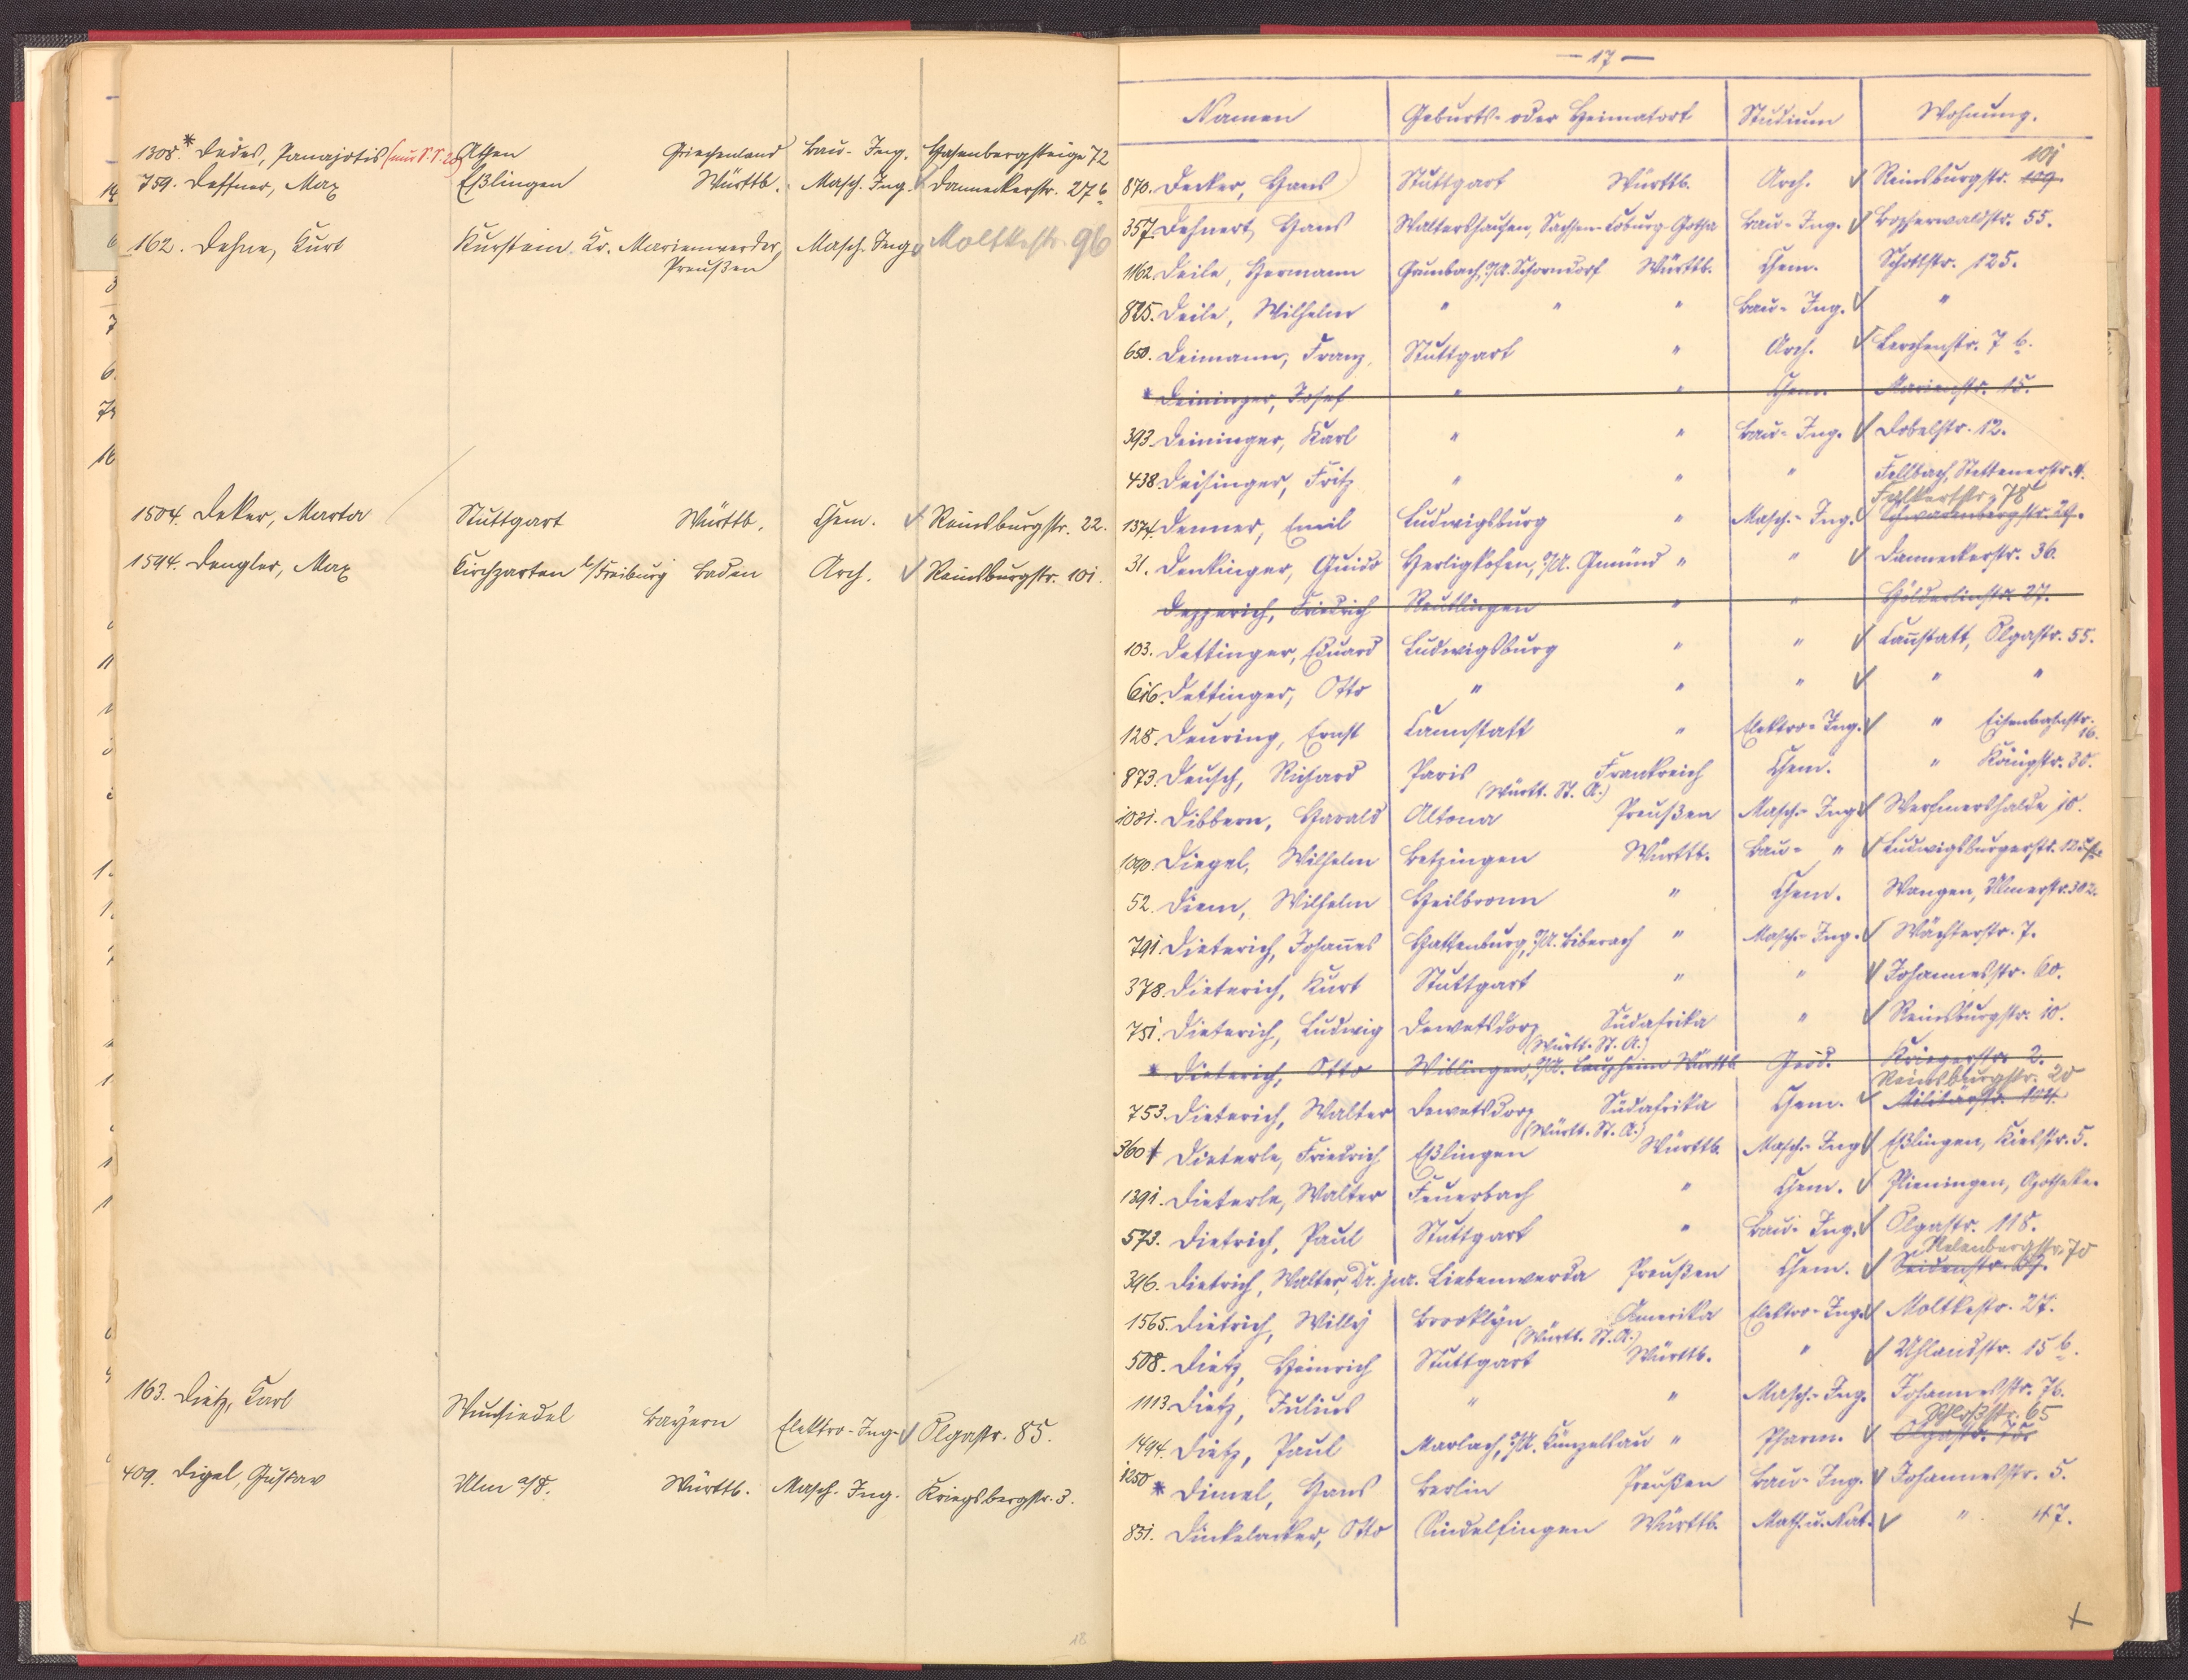 1308.* Dedes, Panajotis (nur S.S. 20) Athen Griechenland Bau-Ing. Hasenbergsteige 72
759. Deffner, Max Eßlingen Württb. Masch. Ing. Danneckerstr. 27 b
162. Dehne, Kurt Kurstein Kr. Marienwerder, Masch. Ing. Moltkestr. 96
Preußen
1504. Deker, Marta Stuttgart Württb. Chem. Reinsburgstr. 22.
1594. Dengler, Max Kirchzarten b/Freiburg Baden Arch. Reinsburgstr. 101.
163. Dietz, Karl Wunsiedel Bayern Elektro-Ing. Olgastr. 85.
409. Digel, Gustav Ulm a/D. Württb. Masch. Ing. Kriegsbergstr. 3.
18
– 17 –
Namen Geburts- oder Heimatort Studium Wohnung.
101
870. Decker, Hans Stuttgart Württb. Arch. Reinsburgstr. 109
357. Dehnert, Hans Waltershausen, Sachsen-Coburg-Gotha Bau-Ing. Bopserwaldstr. 55.
1162. Deile, Hermann Grunbach, O/A. Schorndorf Württb. Chem. Schottstr. 125.
825. Deile, Wilhelm " " " Bau-Ing. "
650. Deimann, Franz, Stuttgart " Arch. Lerchenstr. 7 b.
* Deininger, Josef " " Chem. Marienstr. 15.
393. Deininger, Karl " " Bau-Ing. Dobelstr. 12.
438. Deisinger, Fritz " " " Fellbach, Stettenerstr. 4.
Falkertstr. 78
1374. Denner, Emil Ludwigsburg " Masch.-Ing. Schwarenbergstr. 29.
31. Denkinger, Guido Herligkofen, O/A. Gmünd " " Danneckerstr. 36.
Depperich, Friedrich Reutlingen " " Hölderlinstr. 27.
103. Dettinger, Eduard Ludwigsburg " " Can̄statt, Olgastr. 55.
616. Dettinger, Otto " " " " "
128. Deuring, Ernst Cannstatt " Elektro-Ing. " Eisenbahnstr. 16.
873. Deusch, Richard Paris Frankreich Chem. " Königstr. 30.
(Württ. St. A.)
1031. Dibbern, Harald Altona Preußen Masch.-Ing. Werfmershalde 10.
1090. Diegel, Wilhelm Betzingen Württb. Bau- " Ludwigsburgerstr.
52. Diem, Wilhelm Heilbronn " Chem. Wangen, Ulmerstr. 302.
791. Dieterich, Johan̄es Hattenburg, O/A. Biberach " Masch.-Ing. Wächterstr. 7.
378. Dieterich, Kurt Stuttgart " " Johannesstr. 60.
751. Dieterich, Ludwig Dewetsdorp Südafrika " Reinsburgstr. 10.
(Württ. St. A.)
* Dieterich, Otto Wiblingen, O/A. Laupheim Württb. Geod. Kriegerstr. 2.
Reinsburgstr. 20
753. Dieterich, Walter Dewetsdorp Südafrika Chem. Militärstr. 104.
(Württ. St. A.)
360 * Dieterle, Friedrich Eßlingen Württb. Masch.-Ing. Eßlingen, Kiesstr. 5.
1391. Dieterle, Walter Feuerbach " Chem. Plieningen, Apotheke
573. Dietrich, Paul Stuttgart " Bau-Ing. Olgastr. 118.
Relenbergstr. 70
396. Dietrich, Walter, Dr. jur. Liebenwerda Preußen Chem. Seidenstr.
1565. Dietrich, Willy Brooklyn Amerika Elektro-Ing. Moltkestr. 27.
(Württ. St. A.)
508. Dietz, Heinrich Stuttgart Württb. " Uhlandstr. 15 b.
1113. Dietz, Julius " " Masch.-Ing. Johannesstr. 76.
Schloßstr. 65
1494. Dietz, Paul Marlach, O/A. Künzelsau " Pharm. Olgastr. 75.
1250 * Dimel, Hans Berlin Preußen Bau-Ing. Johannesstr. 5.
831. Dinkelacker, Otto Sindelfingen Württb. Math. u. Nat. " 47.